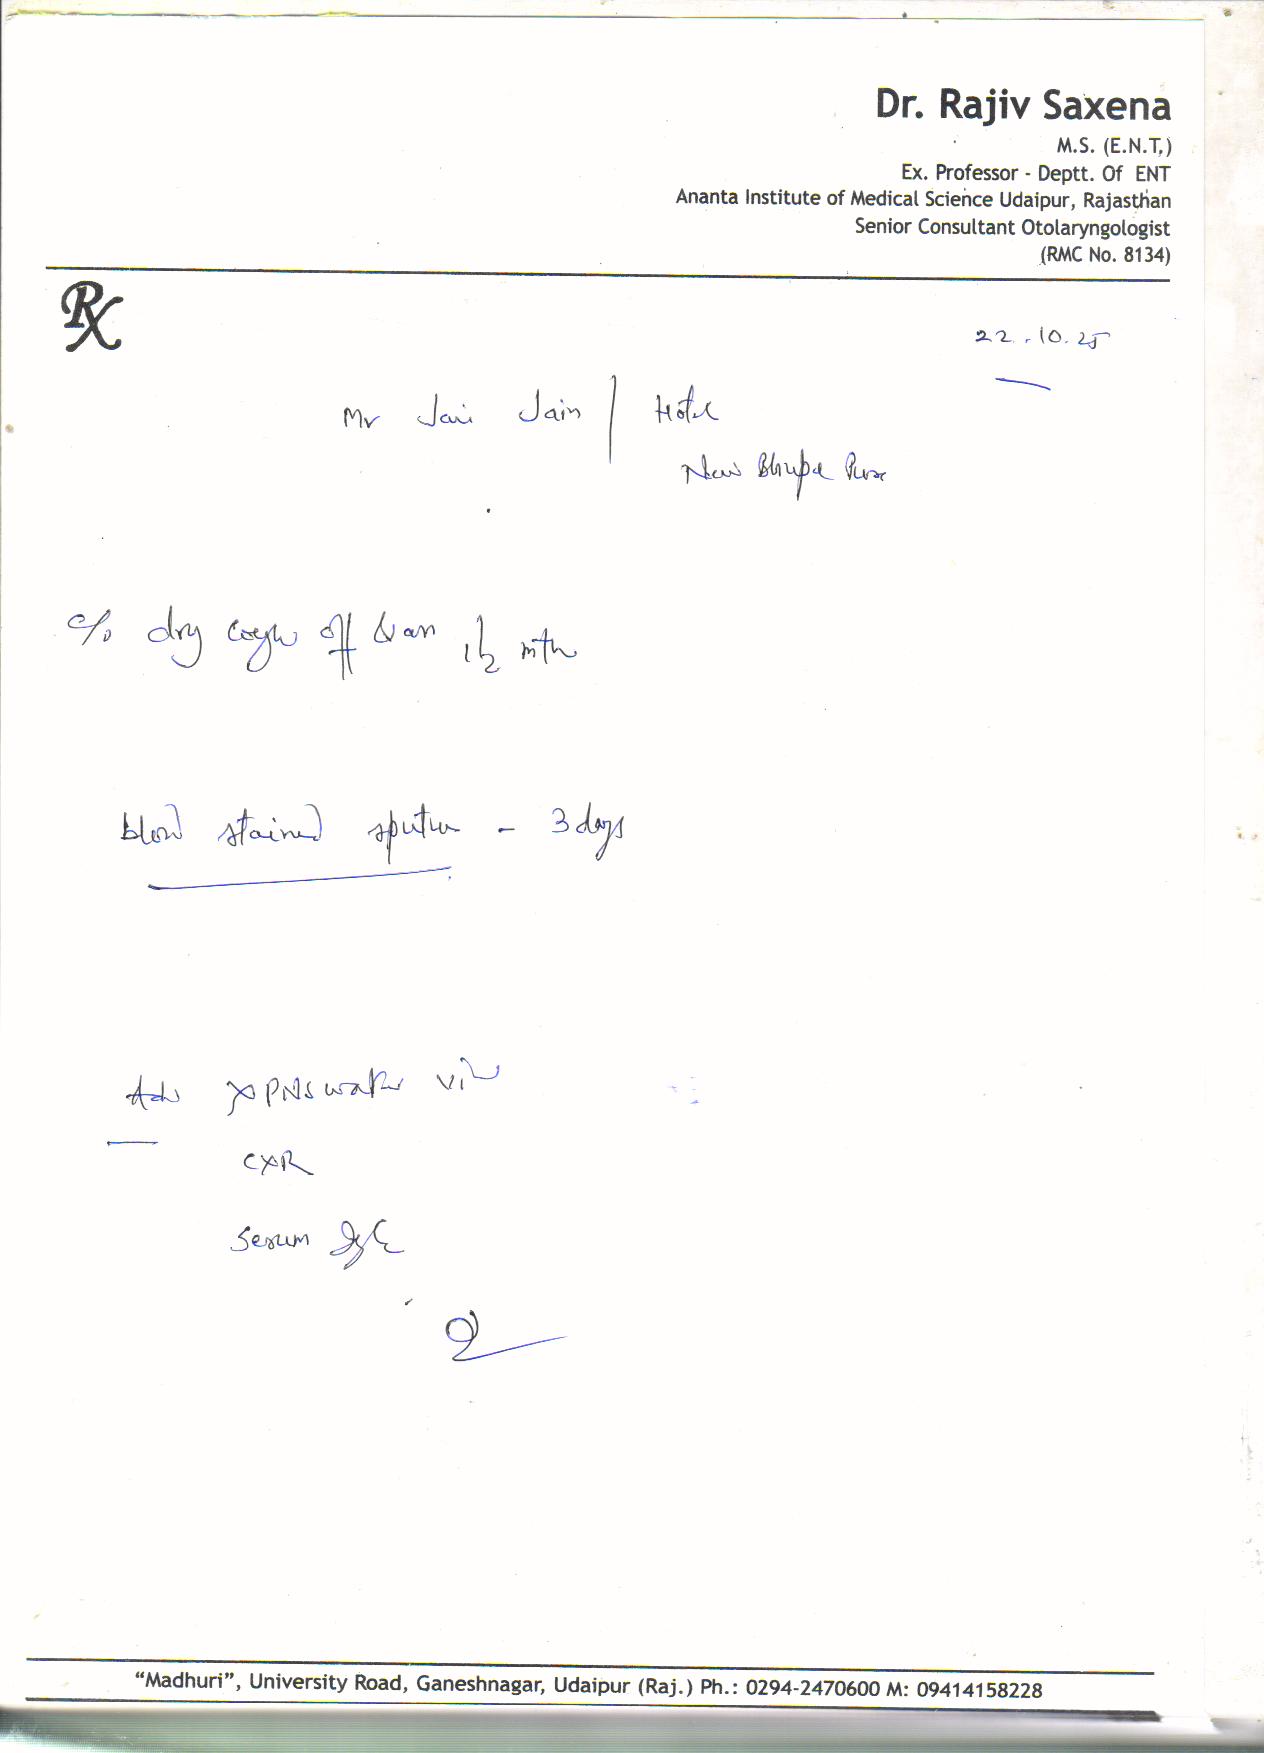 Dr. Rajiv Saxena
M.S. (E.N.T,)
Ex. Professor - Deptt. Of ENT
Ananta Institute of Medical Science Udaipur, Rajasthan
Senior Consultant Otolaryngologist
(RMC No. 8134)
Rx
22.10.25
Mr Jai Jain / Hotel
New Bhupal Pura
c/o dry cough off & on 1 1/2 mth
blood stained sputum - 3 days
Adv X PNS water view
CXR
Serum IgE
“Madhuri”, University Road, Ganeshnagar, Udaipur (Raj.) Ph.: 0294-2470600 M: 09414158228